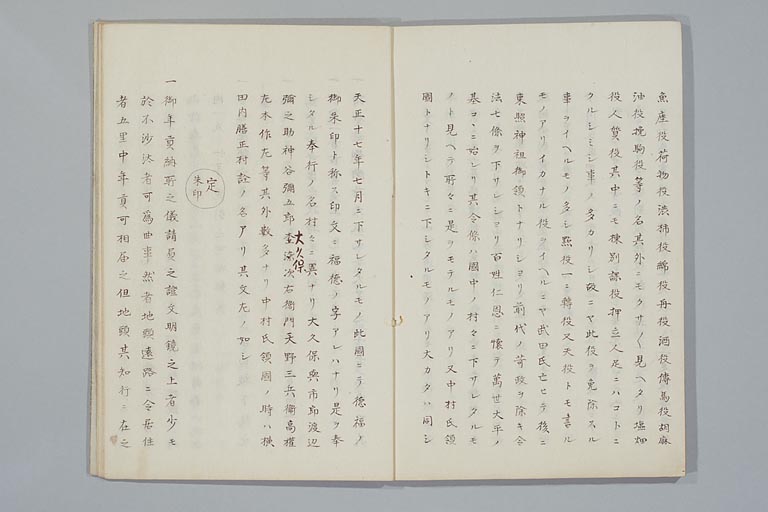 魚座役荷物役渋柿役綿役舟役酒役傳馬役胡麻
油役挽駒役等ノ名其外ニモクサ〱見ヘタリ塩畑
役人質役其中ニモ棟別諸役押立人足ニハコトニ
クルシミシ事ノ多カリシ故ニヤ此役ヲ免除スル
事ヲイヘルモノ多シ點役一ニ轉役又天役トモ書ル
モノアリイカナル役ヲイヘルニヤ武田氏亡ヒテ後ニ
東照神祖御領トナリシヨリ前代ノ苛政ヲ除キ令
法七條ヲ下サレシヨリ百姓仁恩ニ懐テ萬世大平ノ
基コヽニ始レリ其令條ハ國中ノ村々ニ下サレタルモ
ノト見ヘテ所々ニ是ヲモテルモノアリ又中村氏領
國トナリシトキニ下シタルモノアリ大カタハ同シ
天正十七年七月ニ下サレタルモノ此國ニテ徳福ノ
御朱印ト称ス印文ニ福徳ノ字アレハナリ是ヲ奉
シタル奉行ノ名村々ニ異ナリ大久保與市郎渡辺
彌之助神谷彌五郎大久保次右衛門天野三兵衛高權
左本作左等其外数多ナリ中村氏領國ノ時ハ横
田内膳正村詮ノ名アリ其文左ノ如シ
定
朱印
一御年貢納所之儀請負之證文明鏡之上者少モ
於不沙汰者可為曲事然者地頭遠路ニ令居住
者五里中年貢可相届之但地頭其知行ニ在之